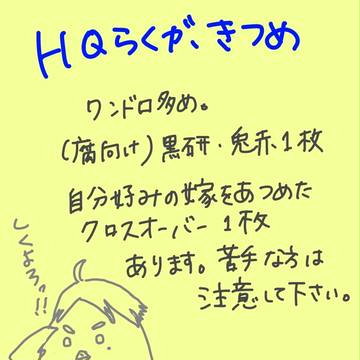 HQらくがきつめ
ワンドロ多め。
(腐向け)黒研・兎赤、1枚
自分好みの嫁をあつめた
クロスオーバー 1枚
あります。苦手な方は
注意して下さい。
しくよろっ!!